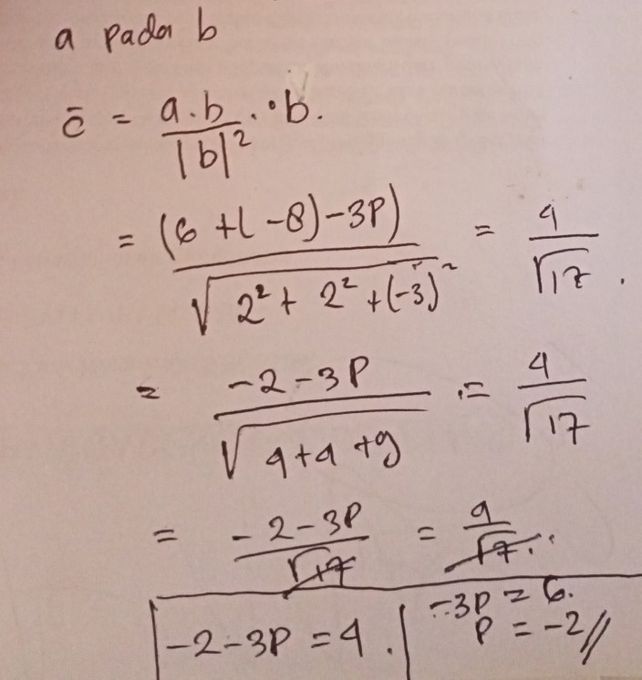 a pada b
c̄ = a.b / |b|² . b.
= (6 + (-8) - 3P) / √2² + 2² + (-3)² = 4 / √17 .
= -2 - 3P / √4+4+9 = 4 / √17
= -2 - 3P / √17 = 4 / √17
-2 - 3P = 4 . | -3P = 6.
P = -2 //